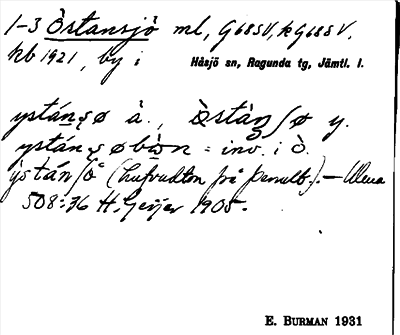 1-3 Östansjö ml, G685V, kG685V,
kb 1921, by i Håsjö sn, Ragunda tg, Jämtl. l.
ystánsø ä., Östànſø y.
ystánsøbòn = inv. i Ö.
(hufvudton på penult.). —
508:36 H. Geijer 1905.
E. BURMAN 1931